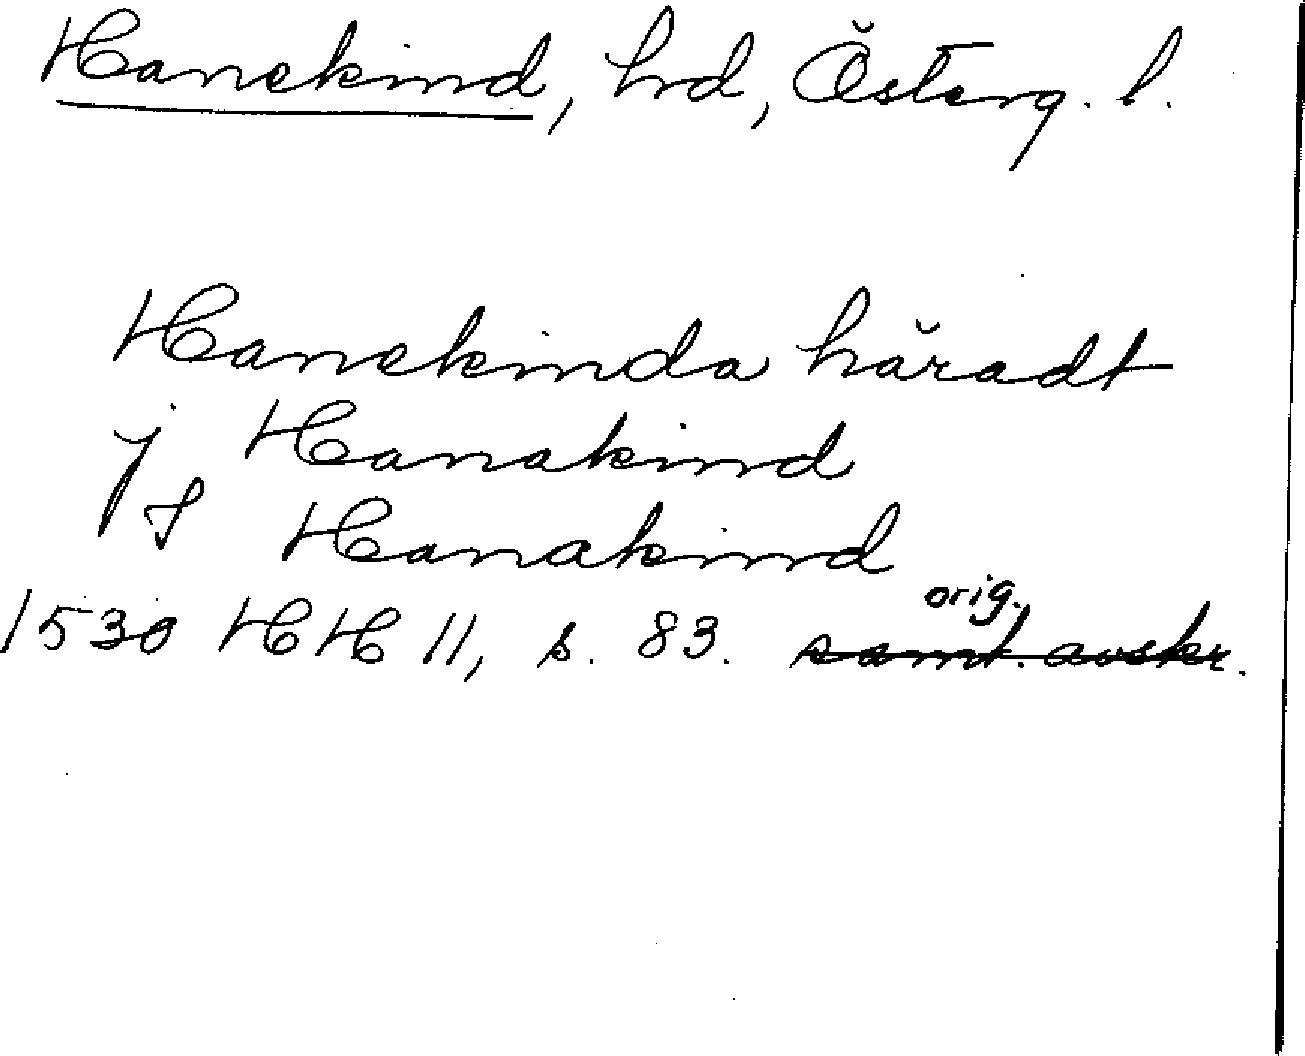 Hanekind, hd, Österg. l.
Hanekinda häradt
j Hanakind
f Hanakind
orig.
1530 HH 11, s. 83. samt. avskr.